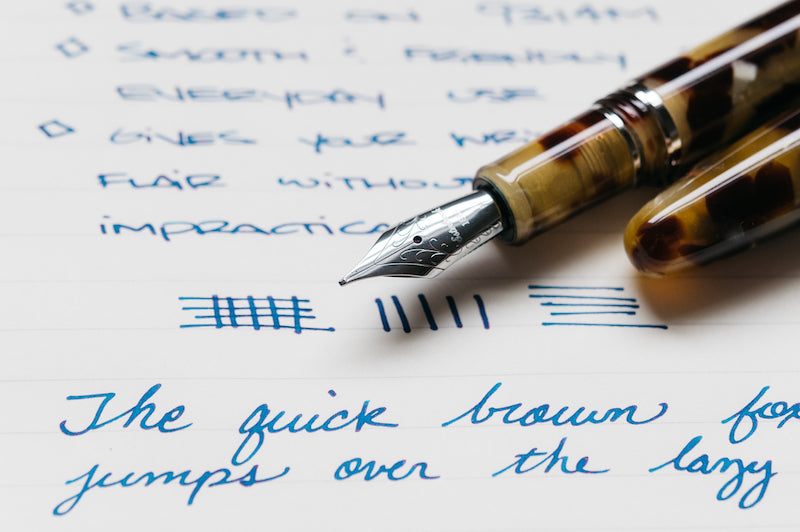 BASED ON
SMOOTH & FRIENDLY
EVERYDAY USE
GIVES YOUR
FLAIR WITHOUT
The quick brown fox
jumps over the lazy